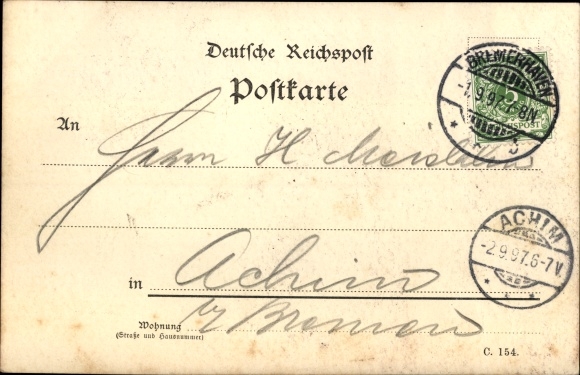 Deutsche Reichspost
Postkarte
BREMERHAVEN
-1.9.97.7-8N.
* b *
5
REICHSPOST
An
Herrn H.
ACHIM
-2.9.97.6-7V.
* * *
in Achim
b/ Bremen
Wohnung
(Straße und Hausnummer)
C. 154.